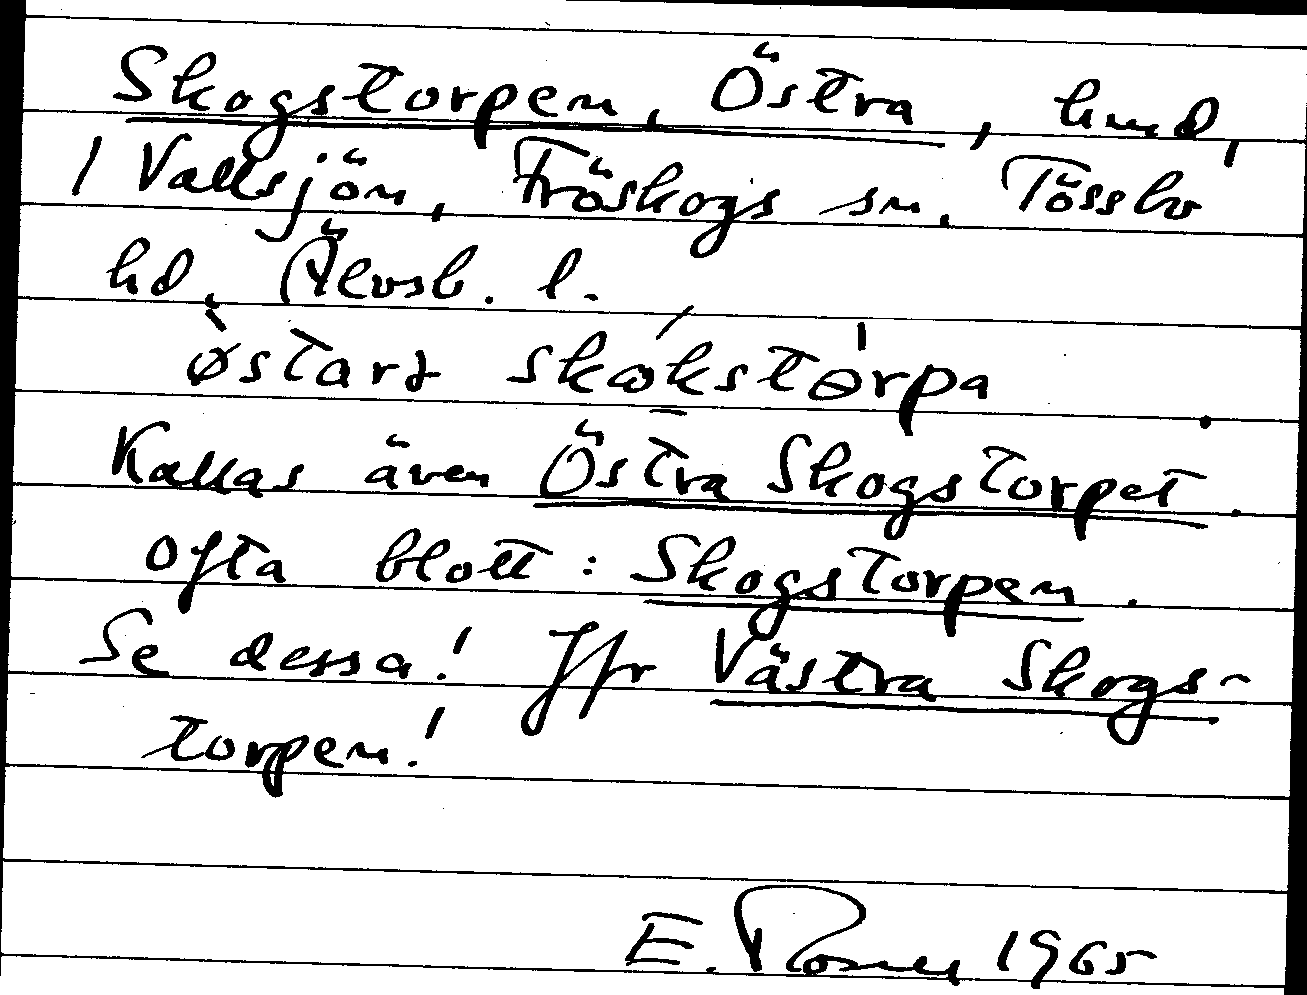 Skogstorpen, Östra, hmd,
1 Vallsjön, Fröskogs sn. Tössbo
hd. Älvsb. l.
østarz skokstørpa.
Kallas även Östra Skogstorpet.
Ofta blott: Skogstorpen.
Se dessa! Jfr Västra Skogs-
torpen!
E. 1965